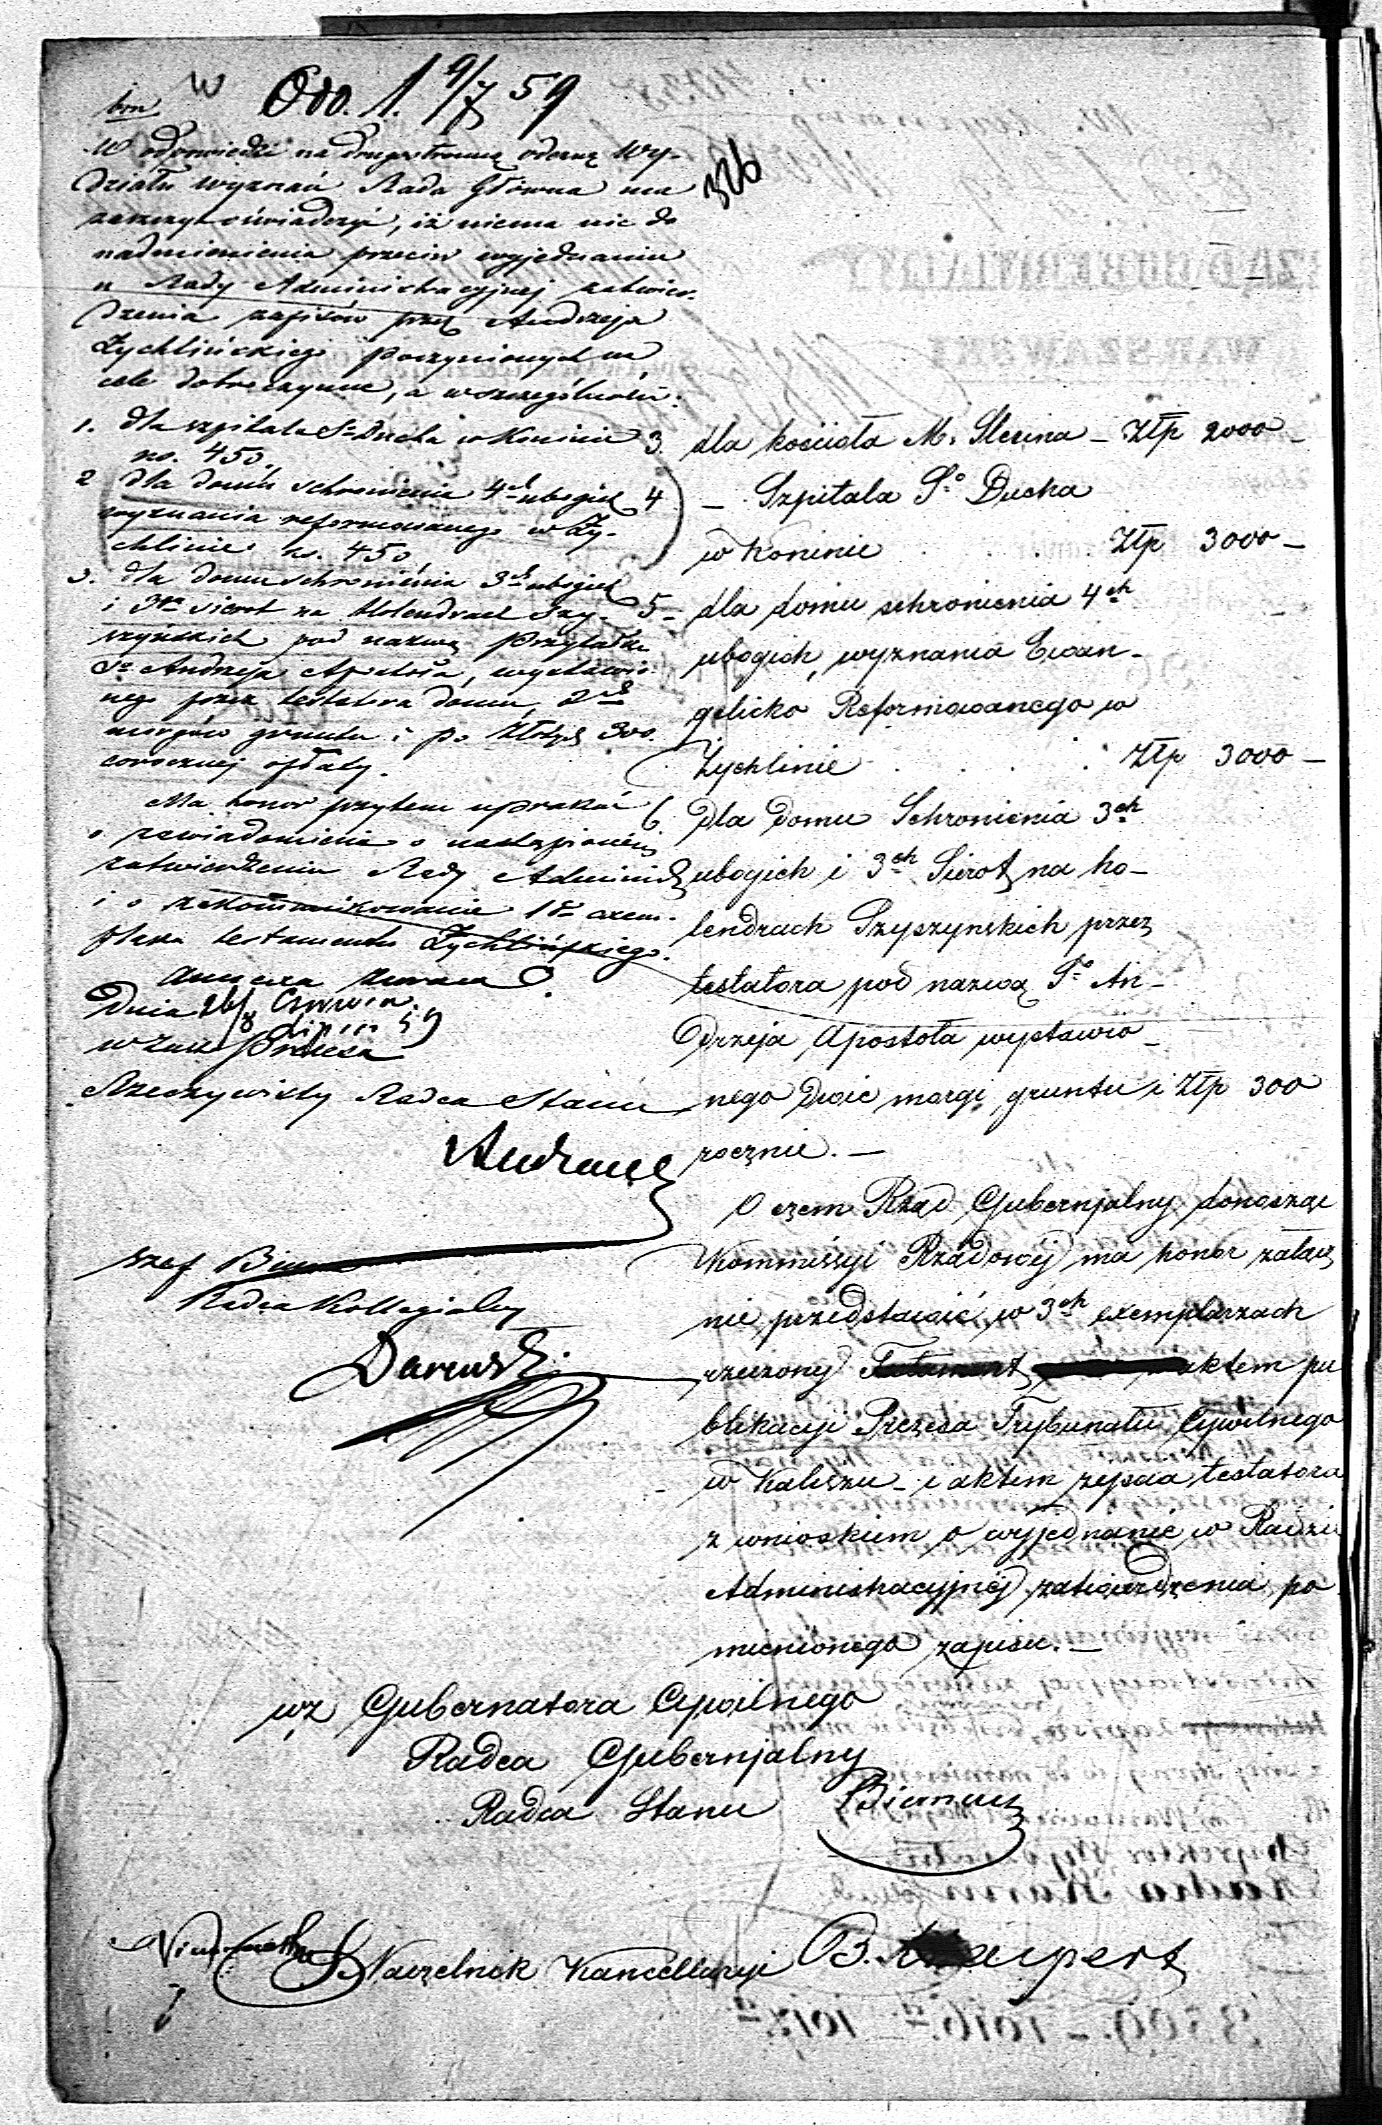 Odo. 1. 9/7 59
326
W odpowiedzi na drugostronną odezwę Wy-
działu Wyznań Rada Główna ma
zaszczyt oświadczyć, iż niema nic do
nadmienienia przeciw wyjednaniu
u Rady Administracyjnej zatwier-
dzenia zapisów przez Andrzeja
Żychlińskiego poczynionych na
cele dobroczynne, a wszczególności:
1. dla szpitala Sgo Ducha w Koninie
rs. 450.
2 dla domu schronienia 4ch ubogich
wyznania reformowanego w Ży-
chlinie rs. 450
3. dla domu schronienia 3ch ubogich
i 3ch sierot na Holendrach Szy-
szyńskich pod nazwą Przytułku
Sgo Andrzeja Apostoła, wystawio-
nego przez testatora domu, 2ch
morgów gruntu i po Złotych 300.
corocznej opłaty.
Ma honor przytem upraszać
o zawiadomienie o nastąpionem
zatwierdzeniu Rady Administr
i o zakommunikowanie 1go exem-
plarza testamentu Żychlińskiego.
Dnia 26/8 Czerwca Lipca 59
w Zast. Prezesa
Rzeczywisty Radca Stanu
Szef Biura
Radca Kollegialny
3. dla kościoła M. Slesina – Złp 2000 –
4 – Szpitala Sgo Ducha
w Koninie . . . Złp 3000 –
5 – dla domu schronienia 4ch
ubogich, wyznania Ewan-
gelicko Reformowanego w
Żychlinie . . . . Złp 3000 –
6 dla domu Schronienia 3ch
ubogich i 3ch Sierot na ho-
lendrach Szyszynskich przez
testatora pod nazwą Sgo An-
drzeja Apostoła wystawio-
nego Dwie morgi gruntu i Złp 300
rocznie. –
O czem Rząd Gubernjalny donosząc
Kommissyi Rządowej ma honor załącz
nie przedstawić w 3ch exemplarzach
rzeczony Testament aktem pu
blikacyi Prezesa Trybunału Cywilnego
w Kaliszu – i aktem zejścia testatora
z wnioskiem o wyjednanie w Radzie
Administracyjnej zatwierdzenia po
mienionego zapisu. –
wz Gubernatora Cywilnego
Radca Gubernjalny
Radca Stanu
Naczelnik Kancellaryi